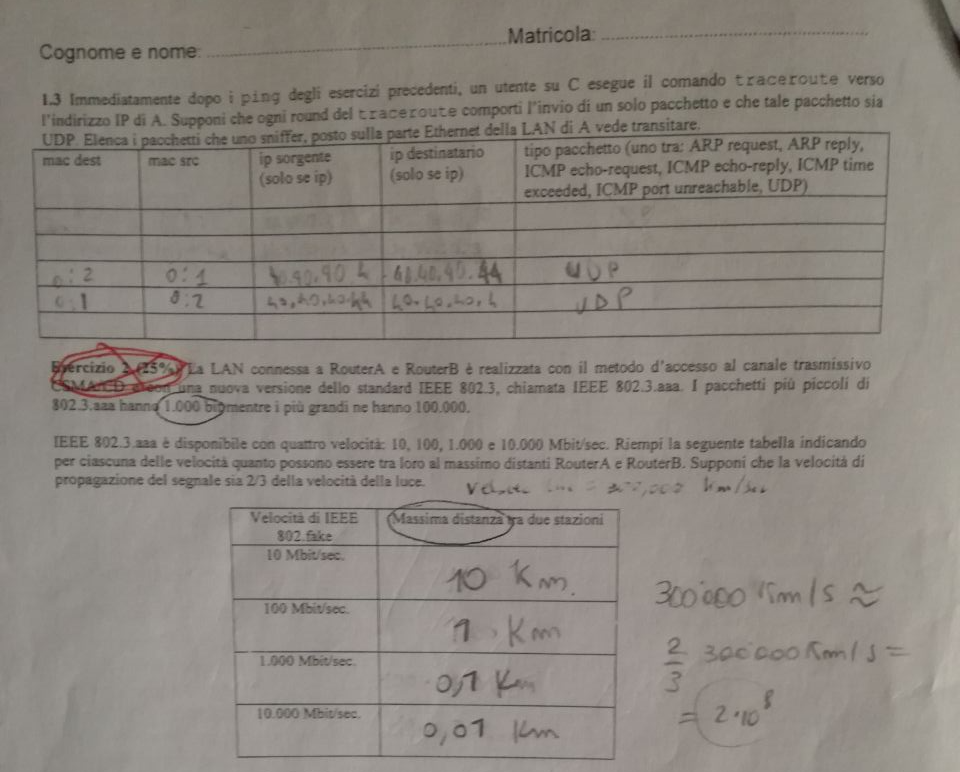 Cognome e nome: Matricola:
1.3 Immediatamente dopo i ping degli esercizi precedenti, un utente su C esegue il comando traceroute verso
l'indirizzo IP di A. Supponi che ogni round del traceroute comporti l'invio di un solo pacchetto e che tale pacchetto sia
UDP. Elenca i pacchetti che uno sniffer, posto sulla parte Ethernet della LAN di A vede transitare.
mac dest mac src ip sorgente ip destinatario tipo pacchetto (uno tra: ARP request, ARP reply,
(solo se ip) (solo se ip) ICMP echo-request, ICMP echo-reply, ICMP time
exceeded, ICMP port unreachable, UDP)
0:2 0:1 40.40.40.4 40.40.40.44 UDP
0:1 0:2 40.40.40.44 40.40.40.4 UDP
Esercizio 2 (25%) La LAN connessa a RouterA e RouterB è realizzata con il metodo d'accesso al canale trasmissivo
CSMA/CD con una nuova versione dello standard IEEE 802.3, chiamata IEEE 802.3.aaa. I pacchetti più piccoli di
802.3.aaa hanno 1.000 bit mentre i più grandi ne hanno 100.000.
IEEE 802.3.aaa è disponibile con quattro velocità: 10, 100, 1.000 e 10.000 Mbit/sec. Riempi la seguente tabella indicando
per ciascuna delle velocità quanto possono essere tra loro al massimo distanti RouterA e RouterB. Supponi che la velocità di
propagazione del segnale sia 2/3 della velocità della luce.
Km/sec
Velocità di IEEE Massima distanza tra due stazioni
802.fake
10 Mbit/sec. 10 Km.
100 Mbit/sec. 1 Km
1.000 Mbit/sec. 0,1 Km
10.000 Mbit/sec. 0,01 Km
300'000 Km/s ≈
2/3 300'000 Km/s =
= 2·10⁸